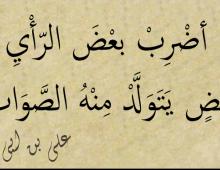 أضْرِبْ بعْضَ الرّأْيِ
ضٍ يَتَوَلَّدْ مِنْهُ الصَّوَاب
علی بن ابی